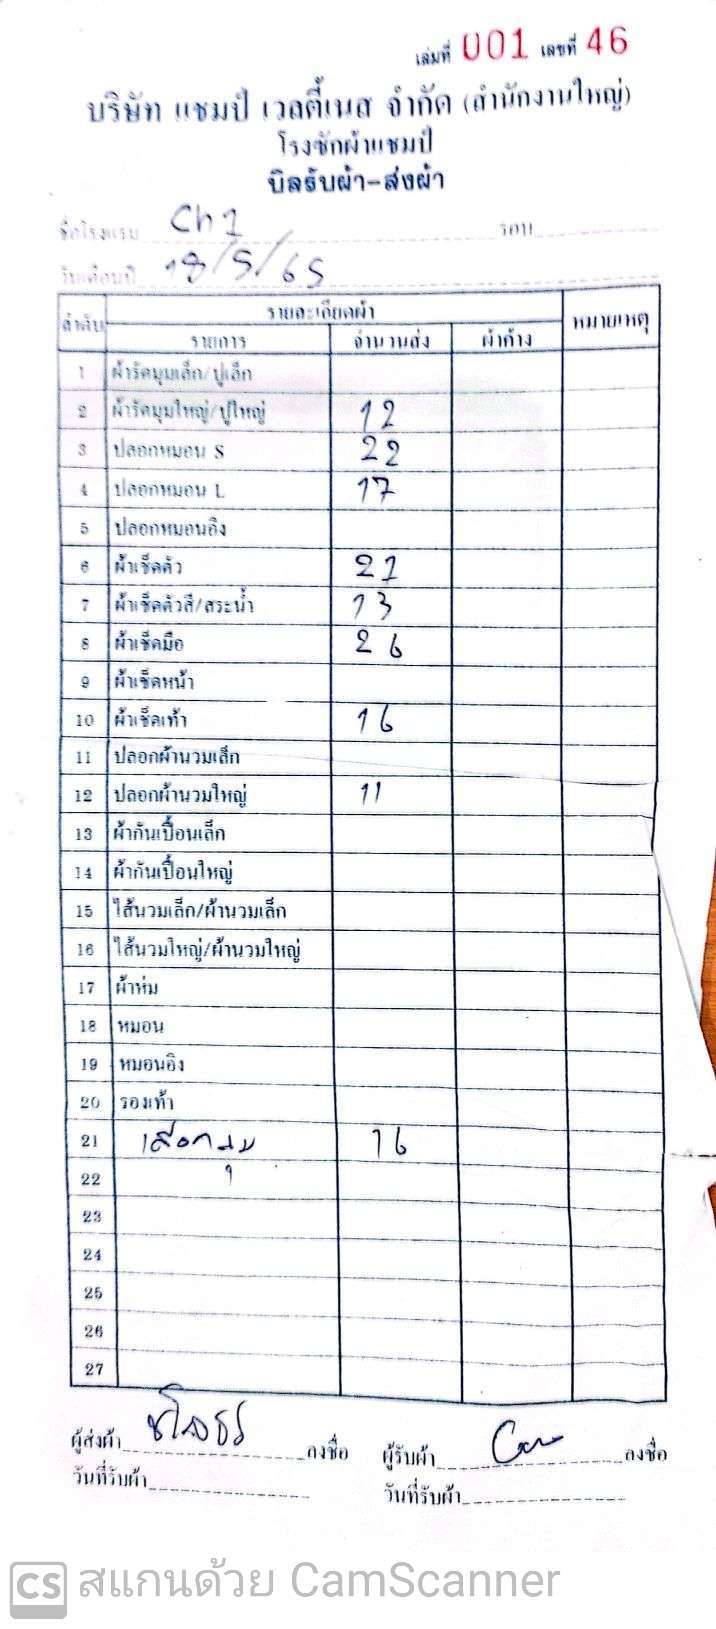 เล่มที่ 001 เลขที่ 46
บริษัท แชมป์ เวลตี้เนส จำกัด (สำนักงานใหญ่)
โรงซักผ้าแชมป์
บิลรับผ้า-ส่งผ้า
ชื่อโรงแรม Ch1 รอบ
วันเดือนปี 18/5/65
ลำดับ รายละเอียดผ้า หมายเหตุ
รายการ จำนวนส่ง ผ้าค้าง
1 ผ้ารัดมุมเล็ก/ปูเล็ก
2 ผ้ารัดมุมใหญ่/ปูใหญ่ 12
3 ปลอกหมอน S 22
4 ปลอกหมอน L 17
5 ปลอกหมอนอิง
6 ผ้าเช็ดตัว 21
7 ผ้าเช็ดตัวสี/สระน้ำ 13
8 ผ้าเช็ดมือ 26
9 ผ้าเช็ดหน้า
10 ผ้าเช็ดเท้า 16
11 ปลอกผ้านวมเล็ก
12 ปลอกผ้านวมใหญ่ 11
13 ผ้ากันเปื้อนเล็ก
14 ผ้ากันเปื้อนใหญ่
15 ไส้นวมเล็ก/ผ้านวมเล็ก
16 ไส้นวมใหญ่/ผ้านวมใหญ่
17 ผ้าห่ม
18 หมอน
19 หมอนอิง
20 รองเท้า
21 16
22
23
24
25
26
27
ผู้ส่งผ้า ลงชื่อ ผู้รับผ้า ลงชื่อ
วันที่รับผ้า วันที่รับผ้า
CS สแกนด้วย CamScanner